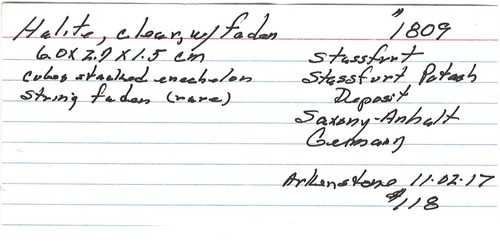 Halite, clear, w/ faden
6.0 x 2.9 x 1.5 cm
cubes stacked enechelon
string faden (rare)
#1809
Stassfurt
Stassfurt Potash
Deposit
Saxony-Anhalt
Germany
Arkenstone 11.02.17
$118